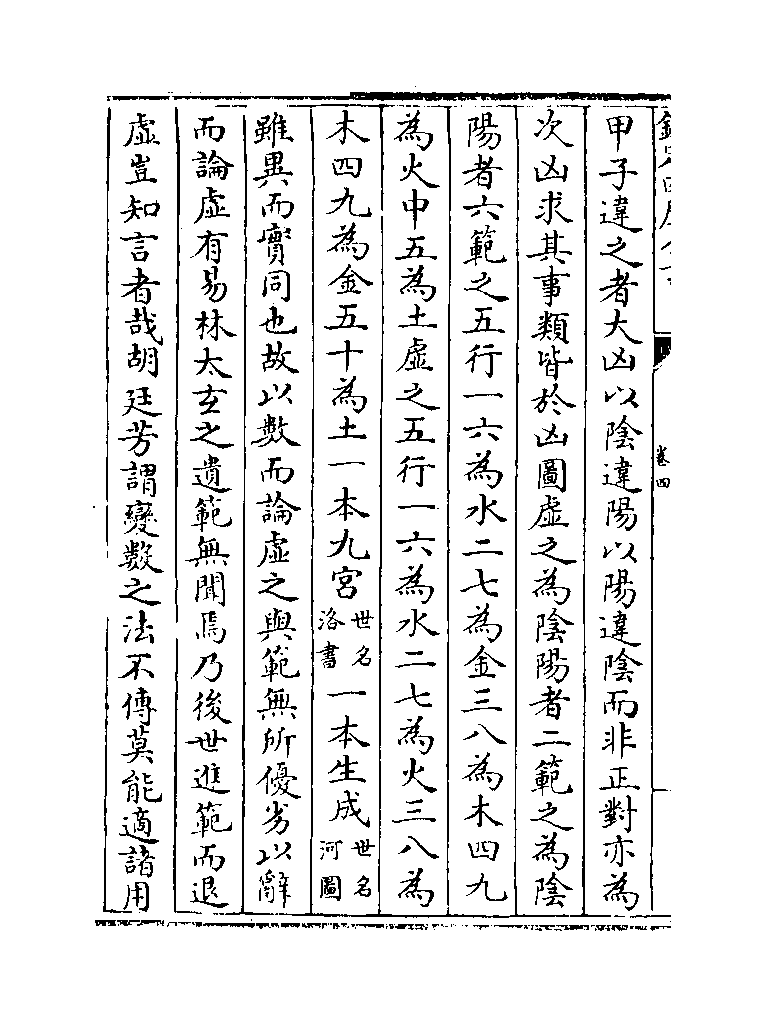 卷四
甲子違之者大凶以陰違陽以陽違陰而非正對亦為
次凶求其事類皆於凶圖虛之為陰陽者二範之為陰
陽者六範之五行一六為水二七為金三八為木四九
為火中五為土虛之五行一六為水二七為火三八為
木四九為金五十為土一本九宮世名洛書一本生成世名河圖
雖異而實同也故以數而論虛之與範無所優劣以辭
而論虛有易林太玄之遺範無聞焉乃後世進範而退
虛豈知言者哉胡廷芳謂變數之法不傳莫能適諸用